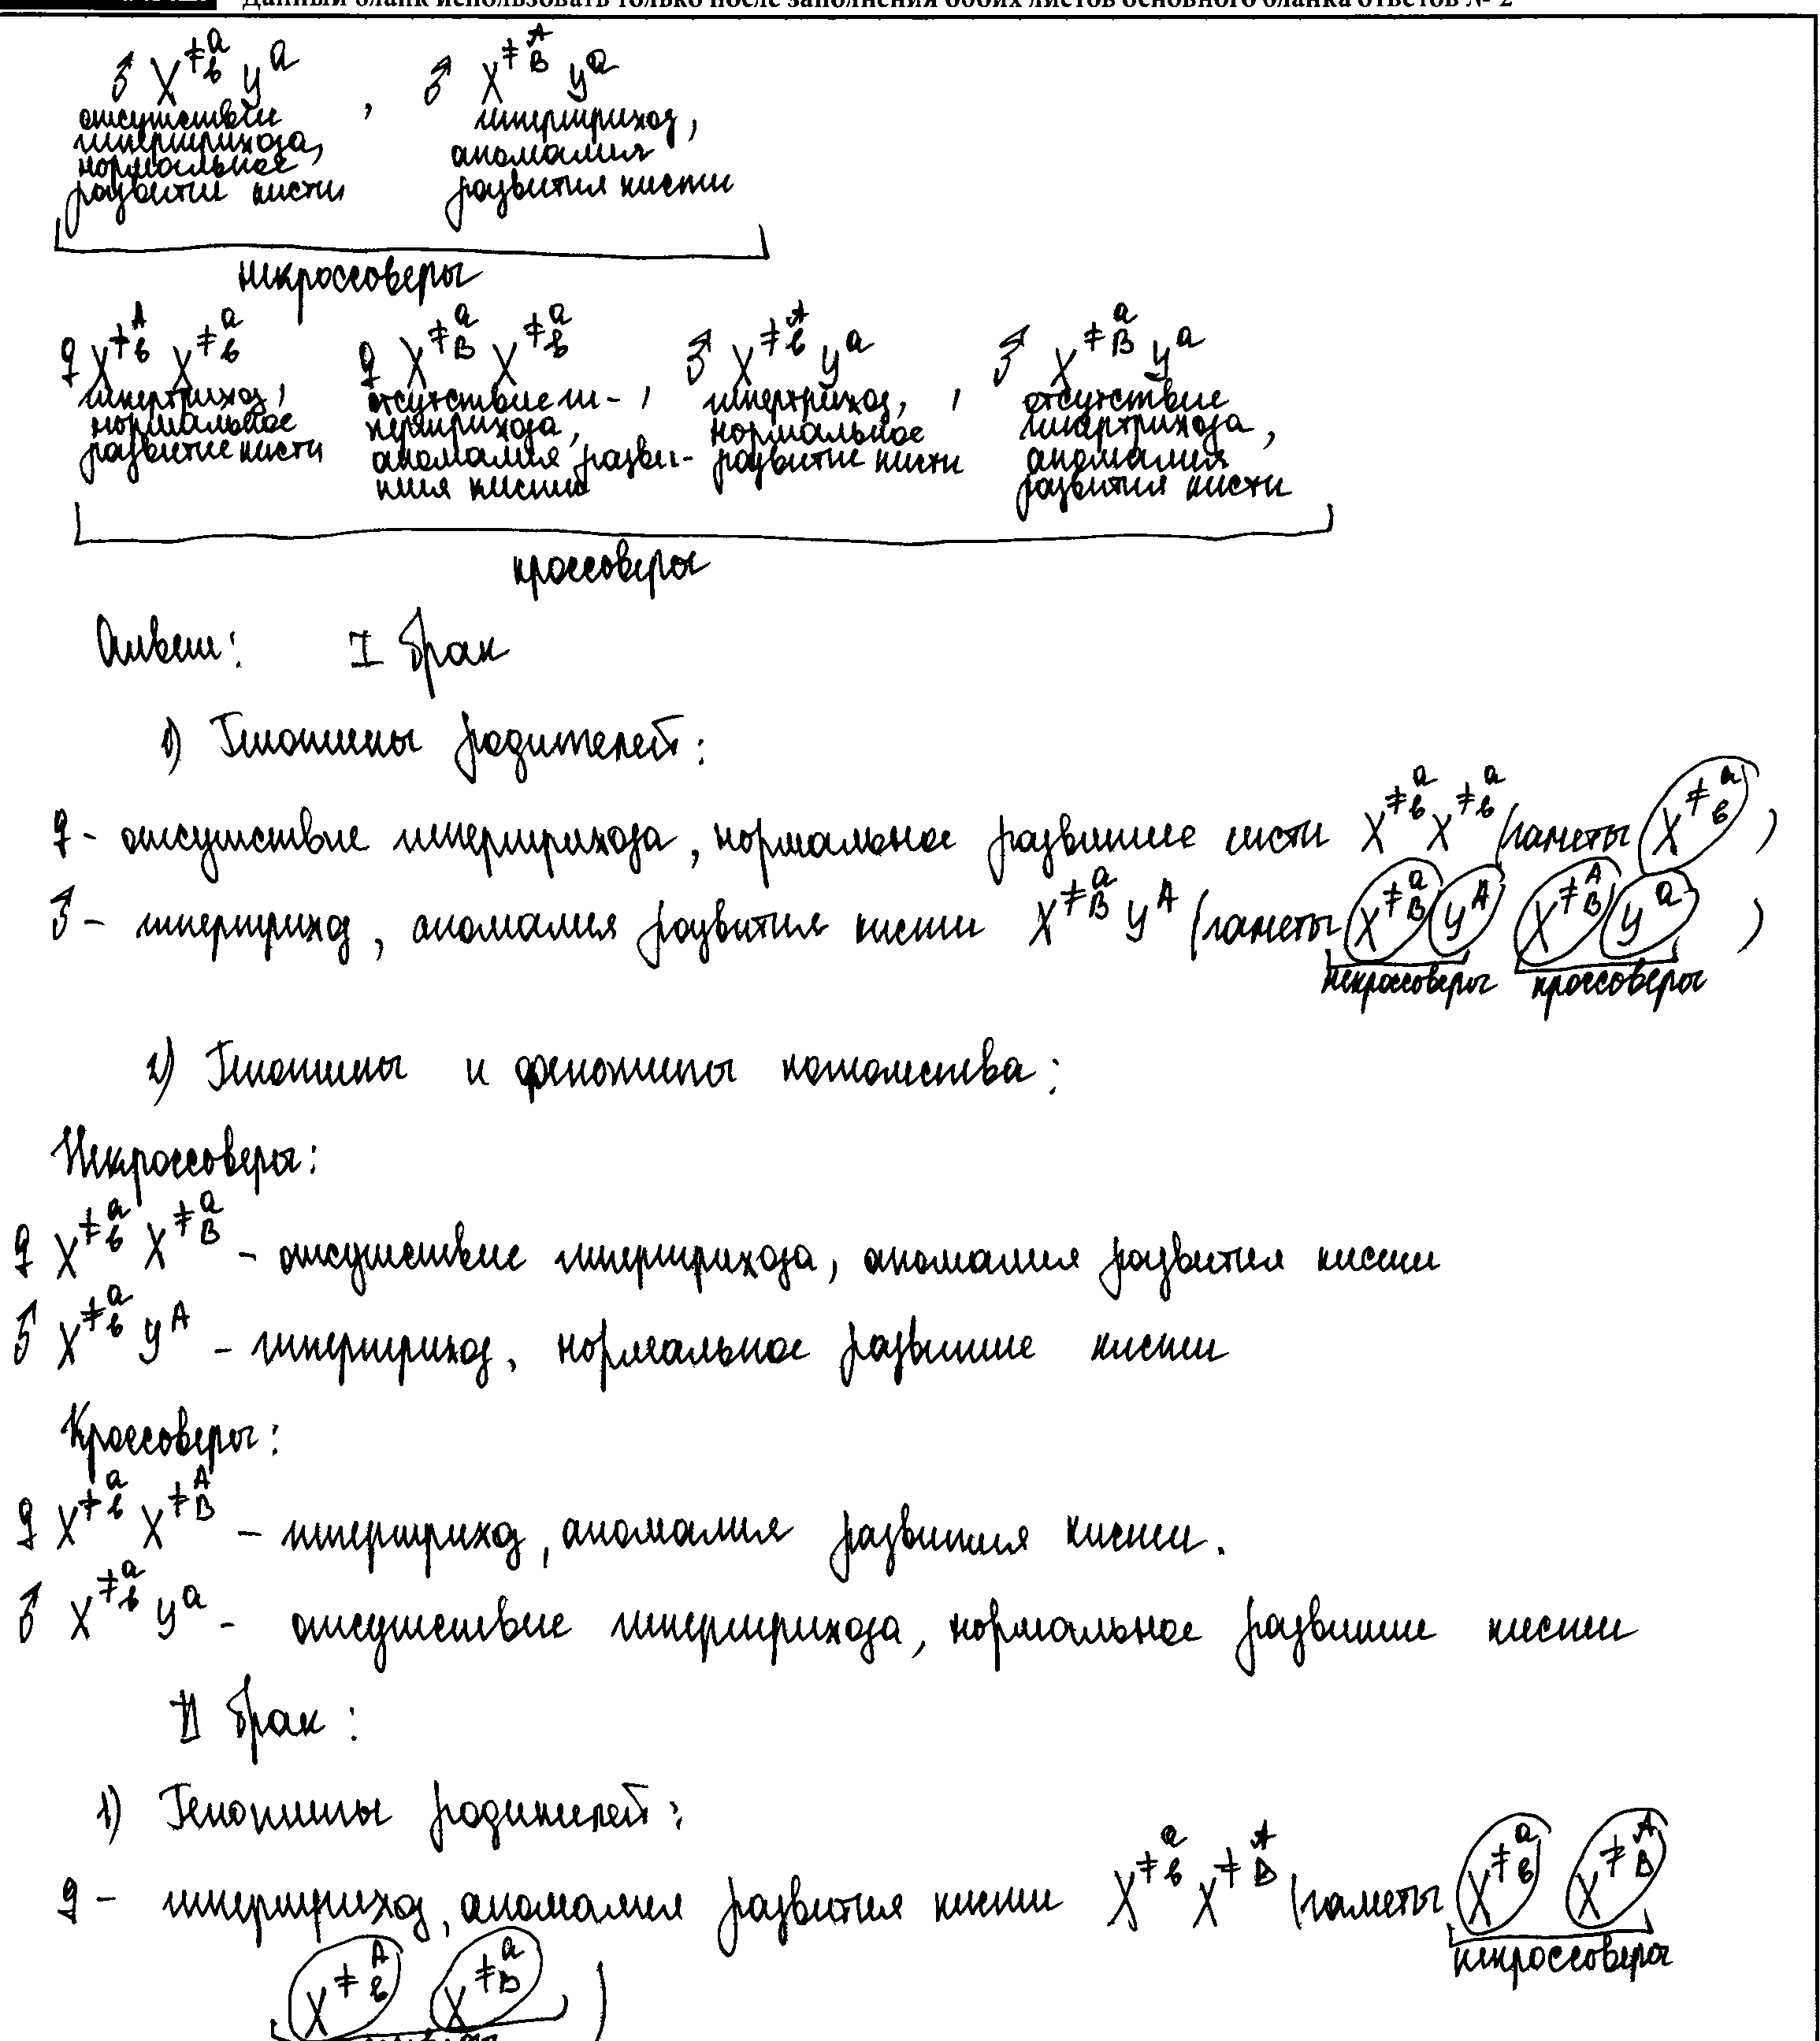 Данный бланк использовать только после заполнения обоих листов основного бланка ответов № 2
♂ X^≠ᵃ_в y^a , ♂ X^≠ᴬ_B y^a
отсутствие гипертрихоза, нормальное развитие кисти
гипертрихоз, аномалия развития кисти
некроссоверы
♀ X^≠ᴬ_в X^≠ᵃ_в
гипертрихоз, нормальное развитие кисти
♀ X^≠ᵃ_B X^≠ᵃ_в
отсутствие ги-
пертрихоза,
аномалия разви-
тия кисти
♂ X^≠ᴬ_в y^a
гипертрихоз, нормальное развитие кисти
♂ X^≠ᵃ_B y^a
отсутствие гипертрихоза, аномалия развития кисти
кроссоверы
Ответ: I брак
1) Генотипы родителей:
♀ - отсутствие гипертрихоза, нормальное развитие кисти X^≠ᵃ_в X^≠ᵃ_в (гаметы X^≠ᵃ_в ),
♂ - гипертрихоз, аномалия развития кисти X^≠ᵃ_B y^A (гаметы X^≠ᵃ_B y^A X^≠ᴬ_B y^a )
некроссоверы кроссоверы
2) Генотипы и фенотипы потомства:
Некроссоверы:
♀ X^≠ᵃ_в X^≠ᵃ_B - отсутствие гипертрихоза, аномалия развития кисти
♂ X^≠ᵃ_в y^A - гипертрихоз, нормальное развитие кисти
Кроссоверы:
♀ X^≠ᵃ_в X^≠ᴬ_B - гипертрихоз, аномалия развития кисти.
♂ X^≠ᵃ_в y^a - отсутствие гипертрихоза, нормальное развитие кисти
II брак:
1) Генотипы родителей:
♀ - гипертрихоз, аномалия развития кисти X^≠ᵃ_в X^≠ᴬ_B (гаметы X^≠ᵃ_в X^≠ᴬ_B
некроссоверы
X^≠ᴬ_в X^≠ᵃ_B )